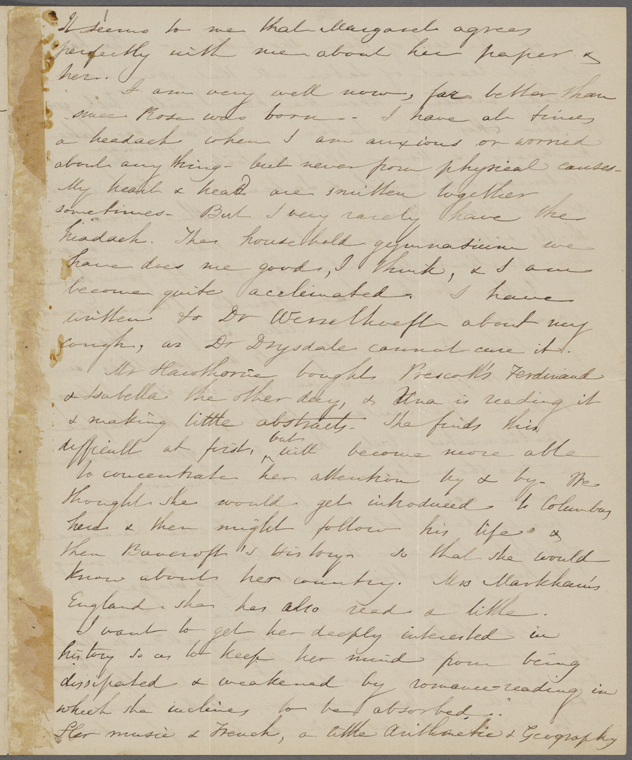 It seems to me that Margaret agrees
perfectly with me about her paper &
her.
I am very well now, far better than
since Rose was born. - I have at times
a headach when I am anxious or worried
about any thing - but never from physical causes -
My heart & head are smitten together
sometimes - But I very rarely have the
headach. The household gymnasium we
have does me good, I think, & I am
become quite acclimated. I have
written to Dr Wesselhoeft about my
cough, as Dr Drysdale cannot cure it.
Mr Hawthorne bought Prescott's Ferdinand
& Isabella the other day, & Una is reading it
& making little abstracts. She finds this
difficult at first, but will become more able
to concentrate her attention by & by. We
thought she would get introduced to Columbus
here & then might follow his life &
then Bancroft's History so that she would
know about her country. Mrs Markham's
England she has also read a little.
I want to get her deeply interested in
history so as to keep her mind from being
dissipated & weakened by romance-reading in
which she inclines to be absorbed.
Her music & French, a little Arithmetic & Geography